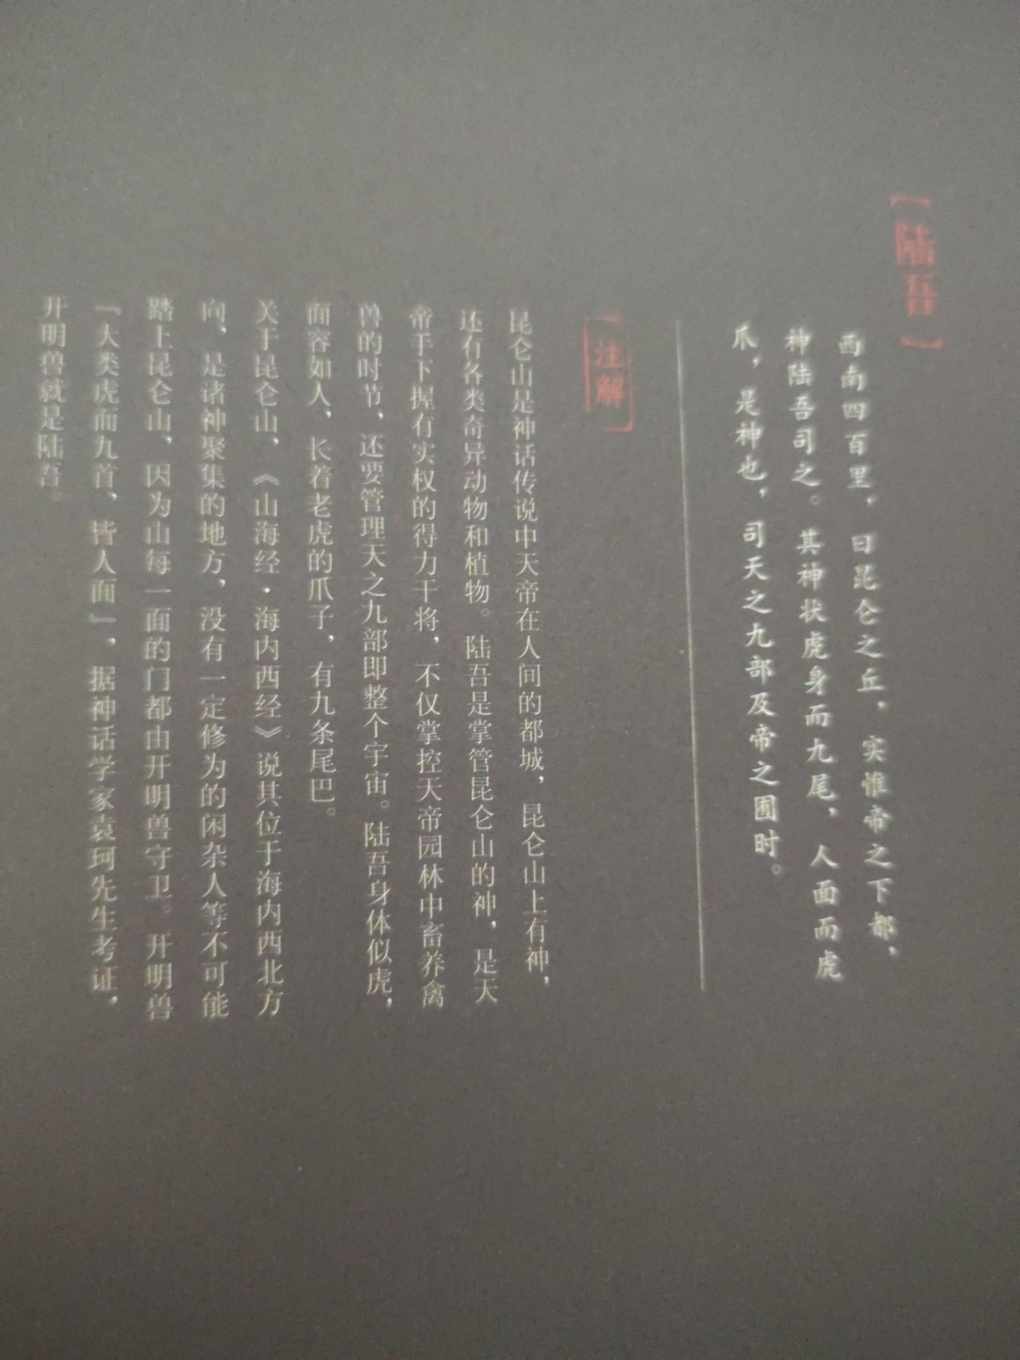 【陆吾】
西南四百里，曰昆仑之丘，实惟帝之下都，
神陆吾司之。其神状虎身而九尾，人面而虎
爪，是神也，司天之九部及帝之囿时。
【注解】
昆仑山是神话传说中天帝在人间的都城，昆仑山上有神，
还有各类奇异动物和植物。陆吾是掌管昆仑山的神，是天
帝手下握有实权的得力干将，不仅掌控天帝园林中畜养禽
兽的时节，还要管理天之九部即整个宇宙。陆吾身体似虎，
面容如人，长着老虎的爪子，有九条尾巴。
关于昆仑山，《山海经·海内西经》说其位于海内西北方
向，是诸神聚集的地方，没有一定修为的闲杂人等不可能
踏上昆仑山，因为山每一面的门都由开明兽守卫。开明兽
「大类虎而九首，皆人面」，据神话学家袁珂先生考证，
开明兽就是陆吾。